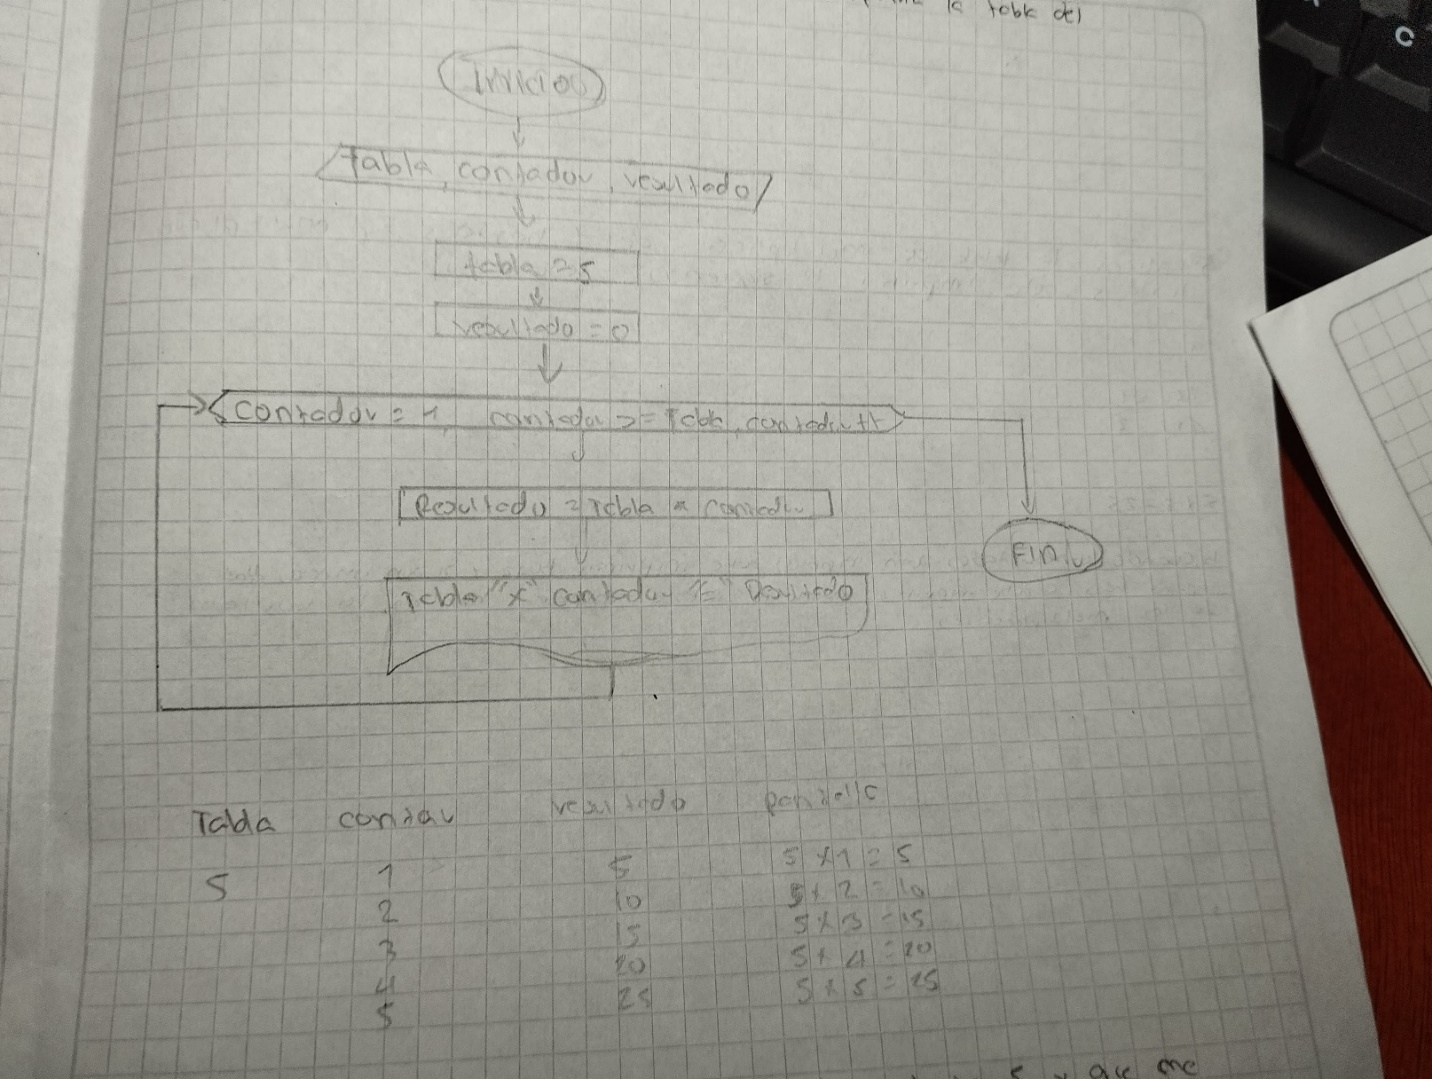 la tabla del
Inicio
tabla, contador, resultado
tabla = 5
resultado = 0
contador = 1, contador >= Tabla, contador ++
Resultado = Tabla * contador
Tabla "x" contador "=" Resultado
Fin
Tabla contar resultado pantalla
5 1 5 5 x 1 = 5
2 10 5 x 2 = 10
3 15 5 x 3 = 15
4 20 5 x 4 = 20
5 25 5 x 5 = 25
que me
C